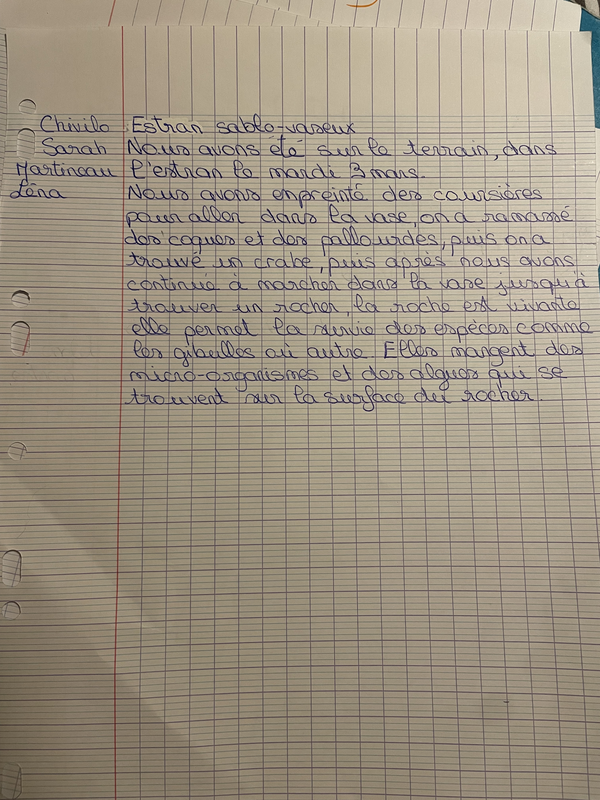 Chivilo Estran sablo-vaseux
Sarah Nous avons été sur le terrain, dans
Martineau l'estran le mardi 3 mars.
Léna Nous avons empreinté des coursières
pour aller dans la vase, on a ramassé
des coques et des pallourdes, puis on a
trouvé un crabe, puis après nous avons
continué à marcher dans la vase jusqu'à
trouver un rocher, la roche est vivante
elle permet la survie des espèces comme
les gibeilles où autre. Elles mangent des
micro-organismes et des algues qui se
trouvent sur la surface du rocher.